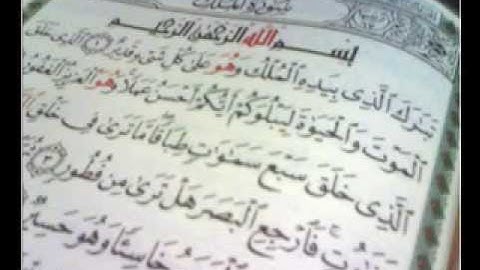 سُورَةُ المُلْكِ
بِسْمِ اللَّهِ الرَّحْمَٰنِ الرَّحِيمِ
تَبَٰرَكَ الَّذِي بِيَدِهِ الْمُلْكُ وَهُوَ عَلَىٰ كُلِّ شَيْءٍ قَدِيرٌ ١ الَّذِي خَلَقَ
الْمَوْتَ وَالْحَيَوٰةَ لِيَبْلُوَكُمْ أَيُّكُمْ أَحْسَنُ عَمَلًا وَهُوَ الْعَزِيزُ الْغَفُورُ
الَّذِي خَلَقَ سَبْعَ سَمَٰوَٰتٍ طِبَاقًا مَّا تَرَىٰ فِي خَلْقِ
فَارْجِعِ الْبَصَرَ هَلْ تَرَىٰ مِن فُطُورٍ ٣
خَاسِئًا وَهُوَ حَسِيرٌ